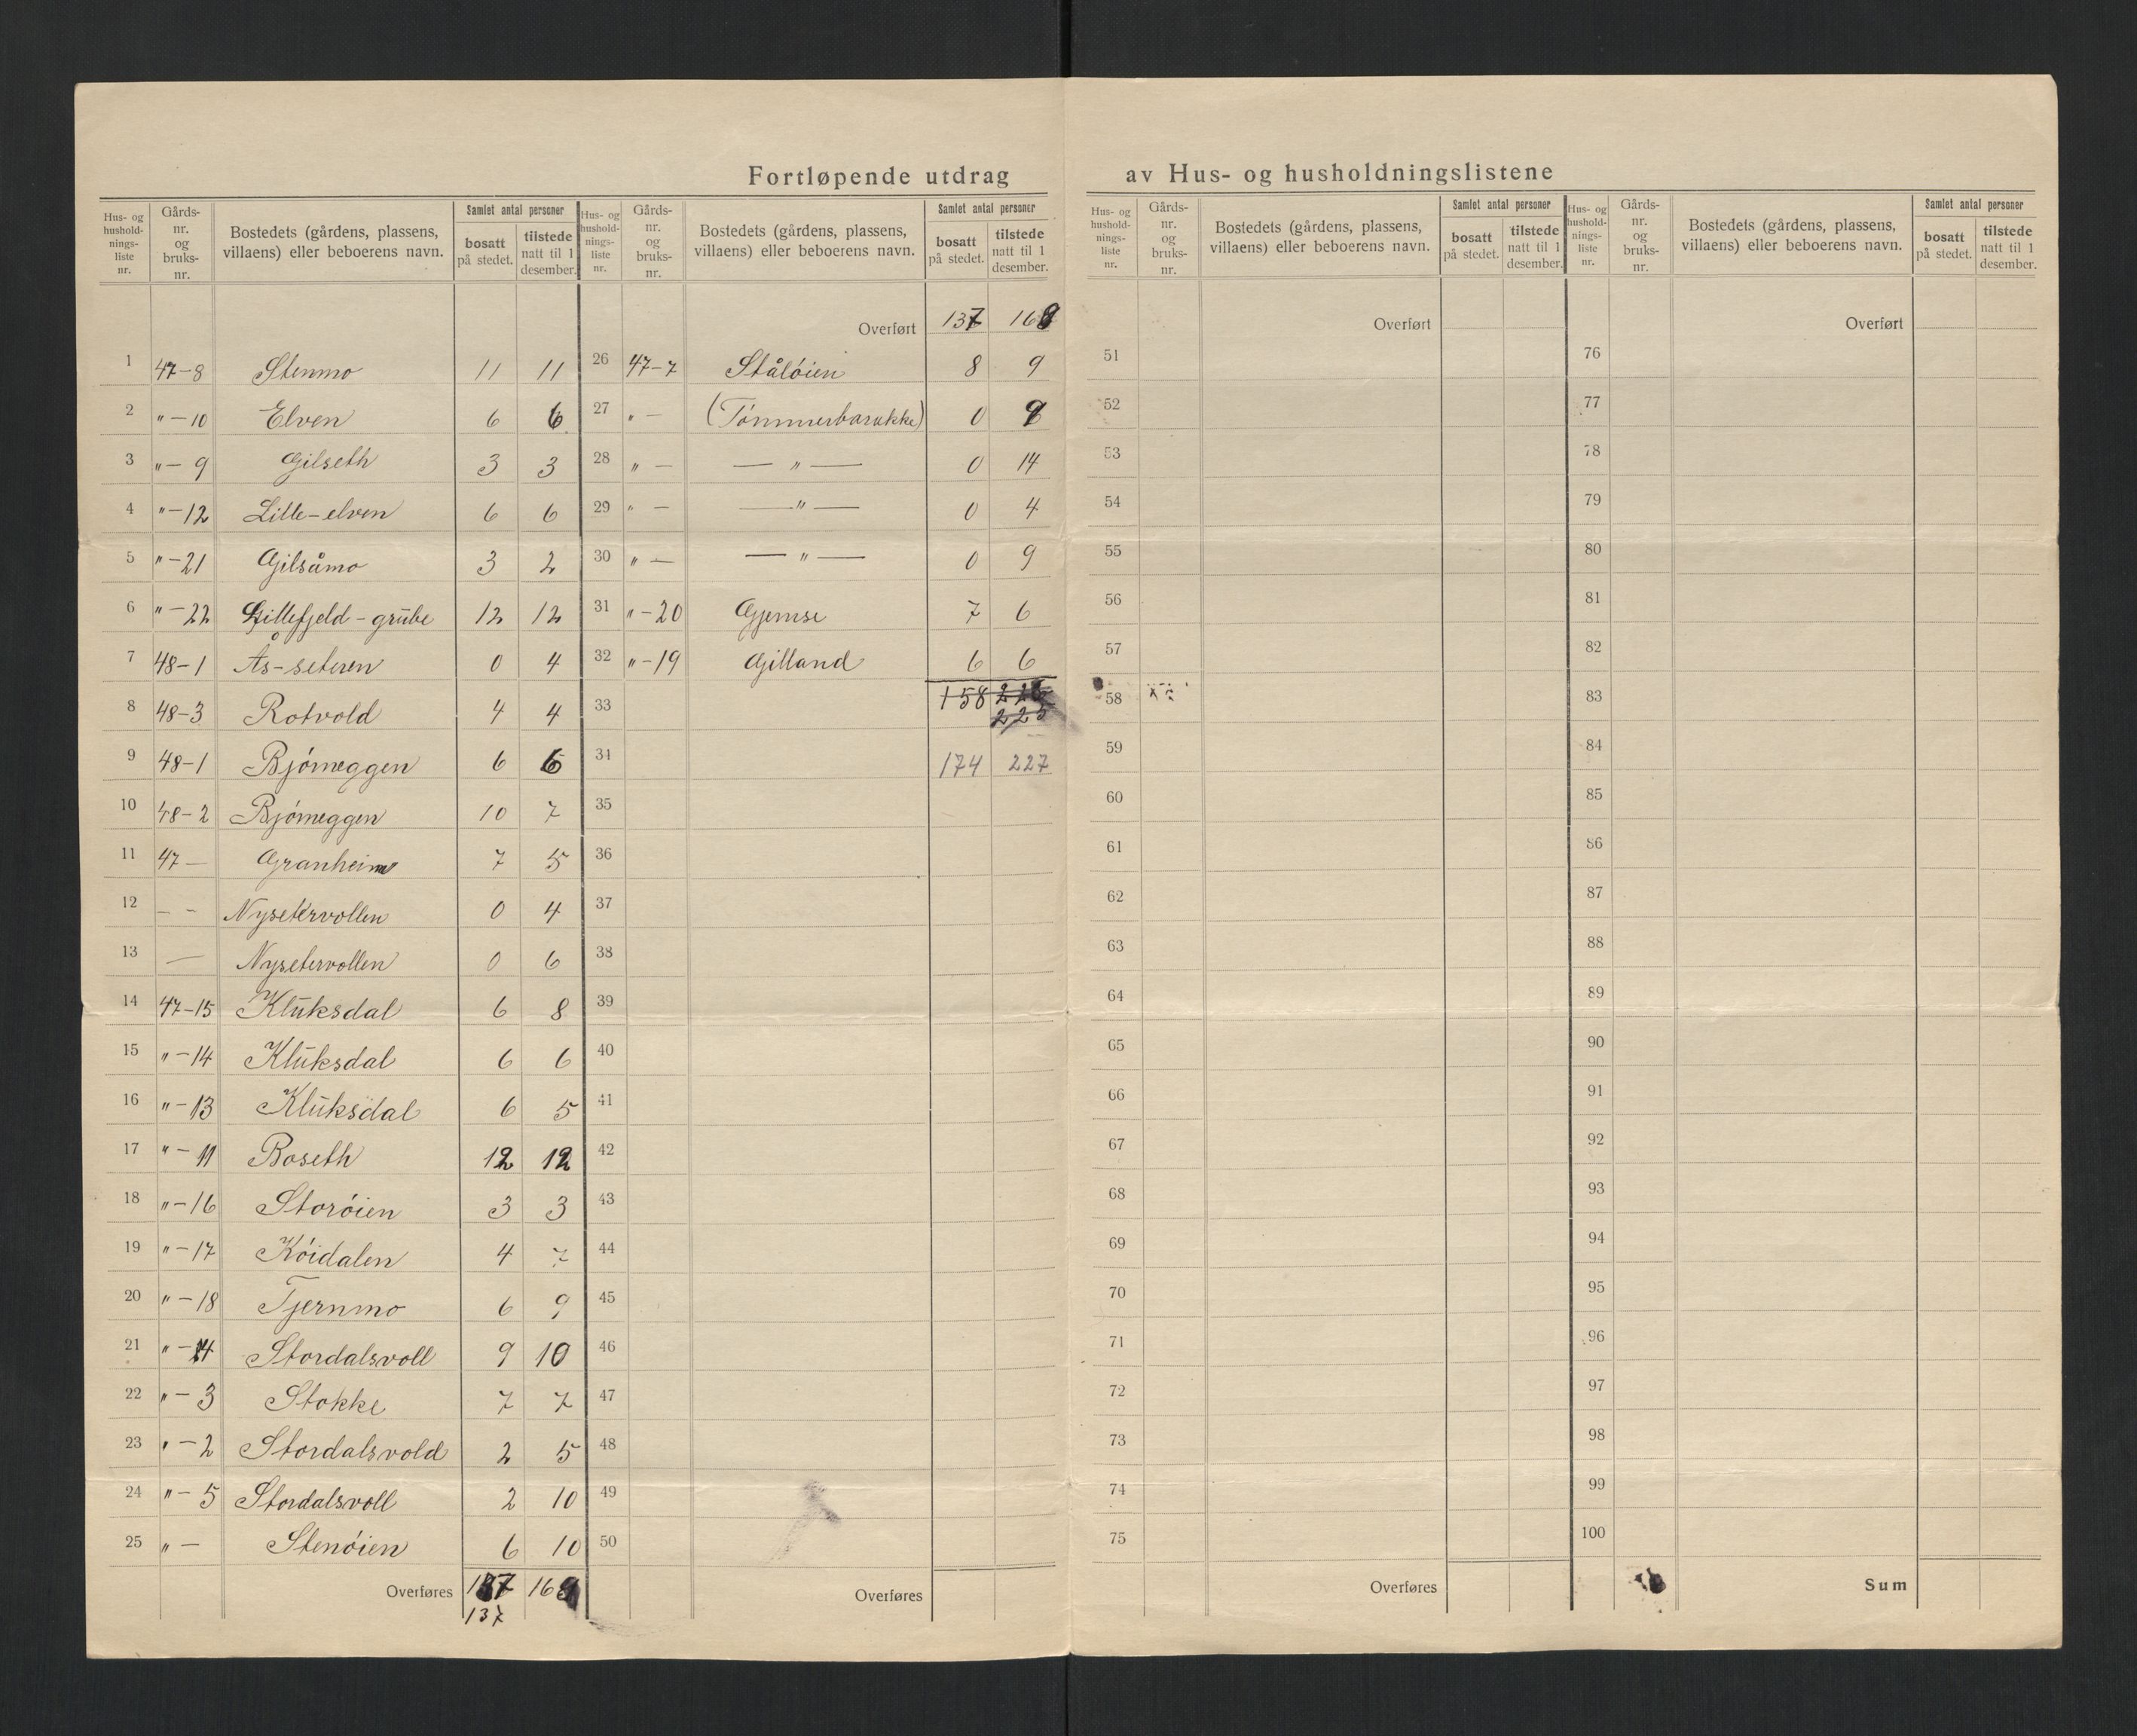 Fortløpende utdrag av Hus- og husholdningslistene
Hus- og hushold- nings- liste nr. Gårds- nr. og bruks- nr. Bostedets (gårdens, plassens, villaens) eller beboerens navn. Samlet antal personer bosatt på stedet. tilstede natt til 1 desember.
1 47-8 Stenmo 11 11
2 "-10 Elven 6 6
3 "-9 Gilseth 3 3
4 "-12 Lille-elven 6 6
5 "-21 Gilsåmo 3 2
6 "-22 Gillefjeld-grube 12 12
7 48-1 Ås-seteren 0 4
8 48-3 Rotvold 4 4
9 48-1 Bjørneggen 6 6
10 48-2 Bjørneggen 10 7
11 47- Granheim 7 5
12 - - Nysetervollen 0 4
13 — Nysetervollen 0 6
14 47-15 Kluksdal 6 8
15 "-14 Kluksdal 6 6
16 "-13 Kluksdal 6 5
17 "-11 Boseth 12 12
18 "-16 Storøien 3 3
19 "-17 Køidalen 4 7
20 "-18 Tjernmo 6 9
21 "-4 Stordalsvoll 9 10
22 "-3 Stokke 7 7
23 "-2 Stordalsvold 2 5
24 "-5 Stordalsvoll 2 10
25 "- Stenøien 6 10
Overføres 137 169
137
Hus- og hushold- nings- liste nr. Gårds- nr. og bruks- nr. Bostedets (gårdens, plassens, villaens) eller beboerens navn. Samlet antal personer bosatt på stedet. tilstede natt til 1 desember.
Overført 137 169
26 47-7 Ståløien 8 9
27 "- (Tømmerbarakke) 0 9
28 "- — " — 0 14
29 "- — " — 0 4
30 "- — " — 0 9
31 "-20 Gjemse 7 6
32 "-19 Gilland 6 6
33 158
225
34 174 227
35
36
37
38
39
40
41
42
43
44
45
46
47
48
49
50
Overføres
Hus- og hushold- nings- liste nr. Gårds- nr. og bruks- nr. Bostedets (gårdens, plassens, villaens) eller beboerens navn. Samlet antal personer bosatt på stedet. tilstede natt til 1 desember.
Overført
51
52
53
54
55
56
57
58
59
60
61
62
63
64
65
66
67
68
69
70
71
72
73
74
75
Overføres
Hus- og hushold- nings- liste nr. Gårds- nr. og bruks- nr. Bostedets (gårdens, plassens, villaens) eller beboerens navn. Samlet antal personer bosatt på stedet. tilstede natt til 1 desember.
Overført
76
77
78
79
80
81
82
83
84
85
86
87
88
89
90
91
92
93
94
95
96
97
98
99
100
Sum